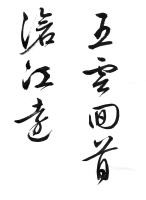 五雲回首
滄江遠